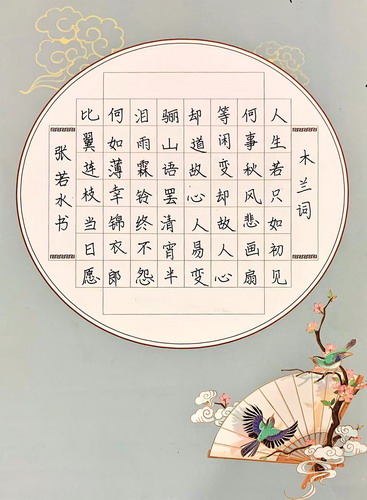 木兰词
人生若只如初见
何事秋风悲画扇
等闲变却故人心
却道故心人易变
骊山语罢清宵半
泪雨霖铃终不怨
何如薄幸锦衣郎
比翼连枝当日愿
张若水书